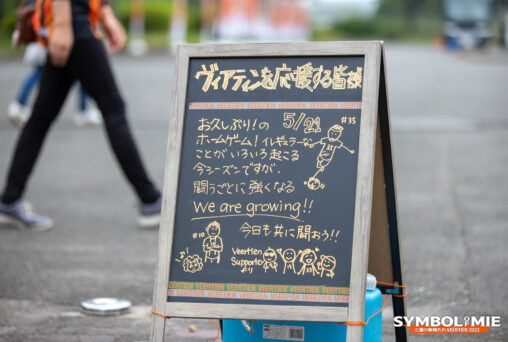 ヴィアティンを応援する皆様
5/21
お久しぶり!の
ホームゲーム! イレギュラーな
ことがいろいろ起こる
今シーズンですが、
闘うごとに強くなる
We are growing!!
今日も共に闘おう!!
#33
#10
Veertien
Supporter
より
SYMBOL OF MIE
三重の象徴たれ VEERTIEN 2022